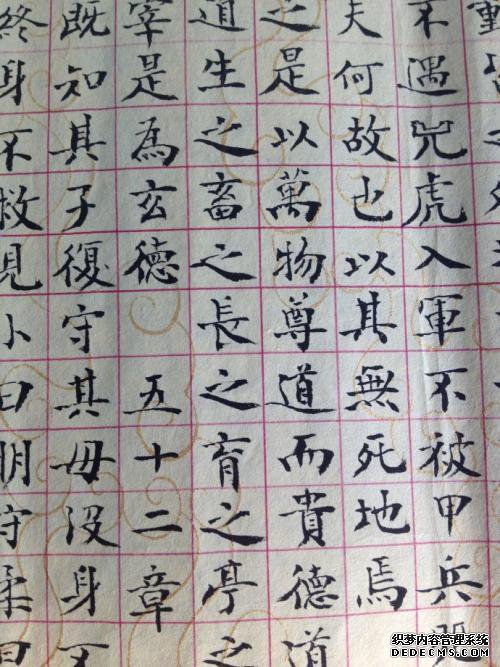 不遇兕虎入軍不被甲兵
夫何故也以其無死地焉
之是以萬物尊道而貴德道
道生之畜之長之育之亭之
宰是為玄德 五十二章
既知其子復守其母沒身不
終身不救見小曰明守柔曰
织梦内容管理系统
DEDECMS.COM